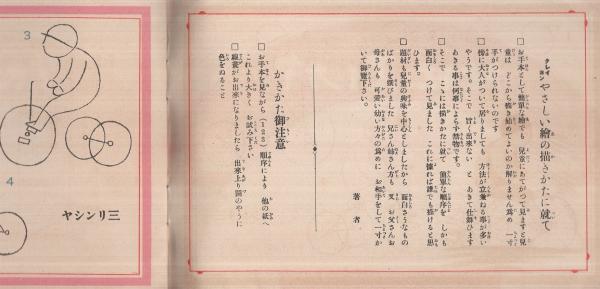 クレイヨン やさしい繪の描きかたに就て
□ お手本として簡單な繪でも 兒童にあてがつて見ますと見
童は どこから描き始めてよいのか解りません為め 一寸
手がつけられないのです
□ 傍に大人がついて居りましても 方法が立兼ねる事が多い
やうです。そこで 旨く出來ない と あきて仕舞ひます
あきる事は何事によらず禁物です。
□ そこで こゝには描きかたに就て 簡單な順序を しかも
面白く つけて見ました これに據れば誰でも描けると思
ひます。
□ 題材も兒童の興味を中心としましたから 面白さうなもの
ばかりを選びました 兄さん姉さん方も 又 お父さんお
母さんも 可愛い幼い方々の為めに お相手をして一寸か
いて御覽下さい。
著者
かきかた御注意
□ お手本を見ながら(123)順序により 他の紙へ
これより大きく お試み下さい
□ 線畫がお出來になりましたら 出來上り圖のやうに
色をぬること
3
4
三リンシヤ